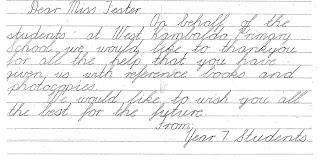 Dear Miss Tester
On behalf of the
students at West Kambalda Primary
School we would like to thankyou
for all the help that you have
given us with reference books and
photocopies.
We would like to wish you all
the best for the future.
From,
Year 7 Students